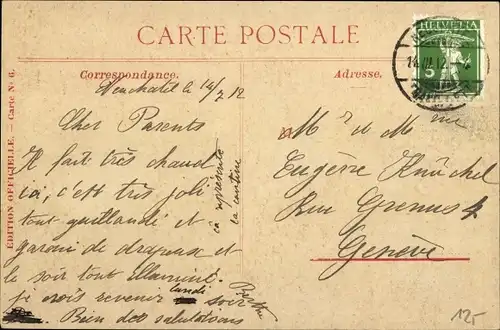 CARTE POSTALE
Correspondance.
Adresse.
EDITION OFFICIELLE. — Carte N° 6.
HELVETIA
5
Neuchâtel le 14/7 12
Cher Parents
Il fait très chaud
ici, c'est très joli
tout guillandé et
garni de drapeaux et
le soir tout illuminé.
je crois revenir lundi soir
Bien des salutations
çà représente
la cantine
Mr et Mme
Eugène Knüchel
Rue Grenus 4
Genève
125